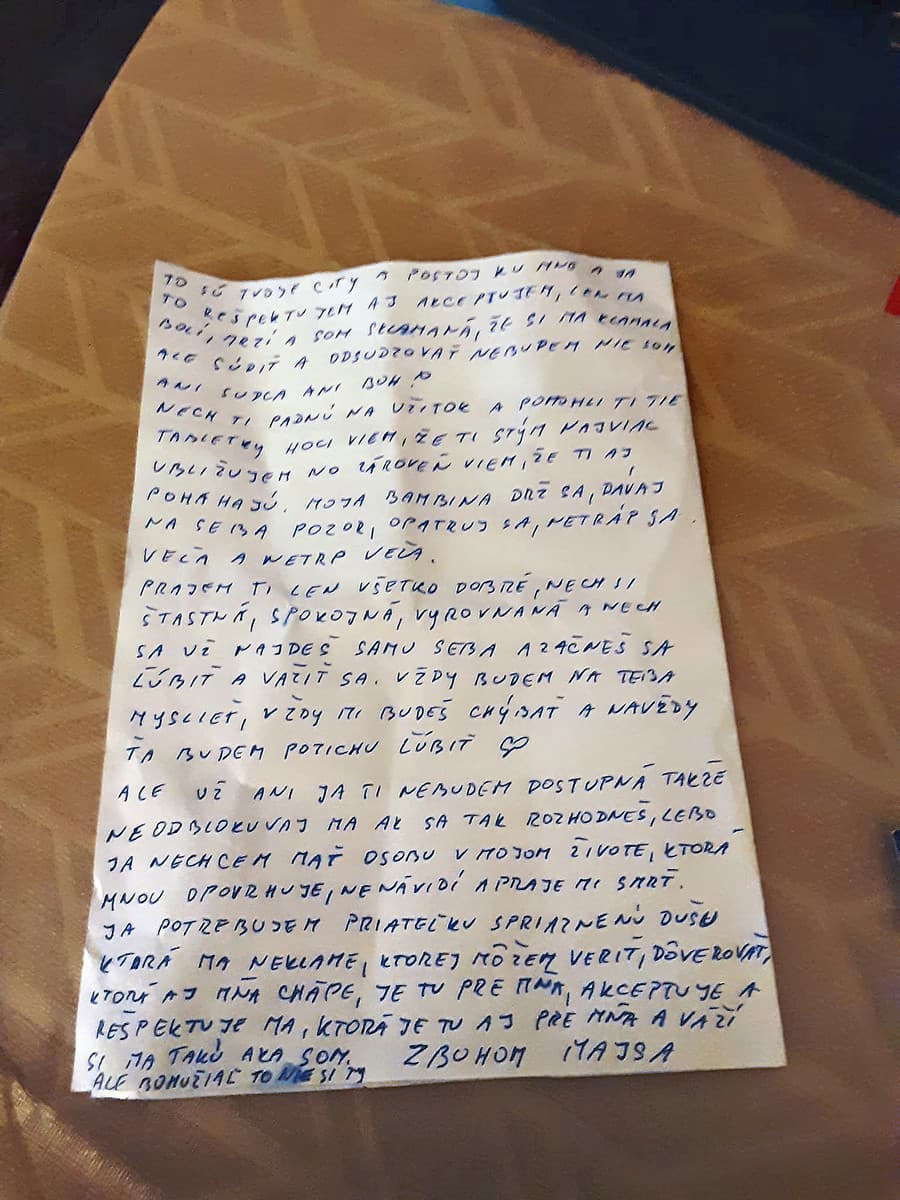 TO SÚ TVOJE CITY A POSTOJ KU MNE A JA
TO REŠPEKTUJEM AJ AKCEPTUJEM, LEN MA
BOLÍ, MRZÍ A SOM SKLAMANÁ, ŽE SI MA KLAMALA
ALE SÚDIŤ A ODSUDZOVAŤ NEBUDEM NIE SOM
ANI SUDCA ANI BOH
NECH TI PADNÚ NA UŽITOK A POMOHLI TI TIE
TABLETKY HOCI VIEM, ŽE TI STÝM NAJVIAC
UBLIŽUJEM NO ZÁROVEŇ VIEM, ŽE TI AJ
POMÁHAJÚ. MOJA BAMBINA DRŽ SA, DÁVAJ
NA SEBA POZOR, OPATRUJ SA, NETRÁP SA
VEĽA A NETRP VEĽA.
PRAJEM TI LEN VŠETKO DOBRÉ, NECH SI
ŠTASTNÁ, SPOKOJNÁ, VYROVNANÁ A NECH
SA UŽ NAJDEŠ SAMU SEBA A ZAČNEŠ SA
ĽÚBIŤ A VAŽIŤ SA. VŽDY BUDEM NA TEBA
MYSLIEŤ, VŽDY MI BUDEŠ CHÝBAŤ A NAVŽDY
ŤA BUDEM POTICHU ĽÚBIŤ ♡
ALE UŽ ANI JA TI NEBUDEM DOSTUPNÁ TAKŽE
NEODBLOKUVAJ MA AK SA TAK ROZHODNEŠ, LEBO
JA NECHCEM MAŤ OSOBU V MOJOM ŽIVOTE, KTORÁ
MNOU OPOVRHUJE, NENÁVIDÍ A PRAJE MI SMRŤ.
JA POTREBUJEM PRIATEĽKU SPRIAZNENÚ DUŠU
KTORÁ MA NEKLAME, KTOREJ MÔŽEM VERIŤ, DÔVEROVAŤ,
KTORÁ AJ MŇA CHÁPE, JE TU PRE MŇA, AKCEPTUJE A
REŠPEKTUJE MA, KTORÁ JE TU AJ PRE MŇA A VÁŽI
SI MA TAKÚ AKA SOM. ZBOHOM MAJSA
ALE BOHUŽIAĽ TO NIE SI TY